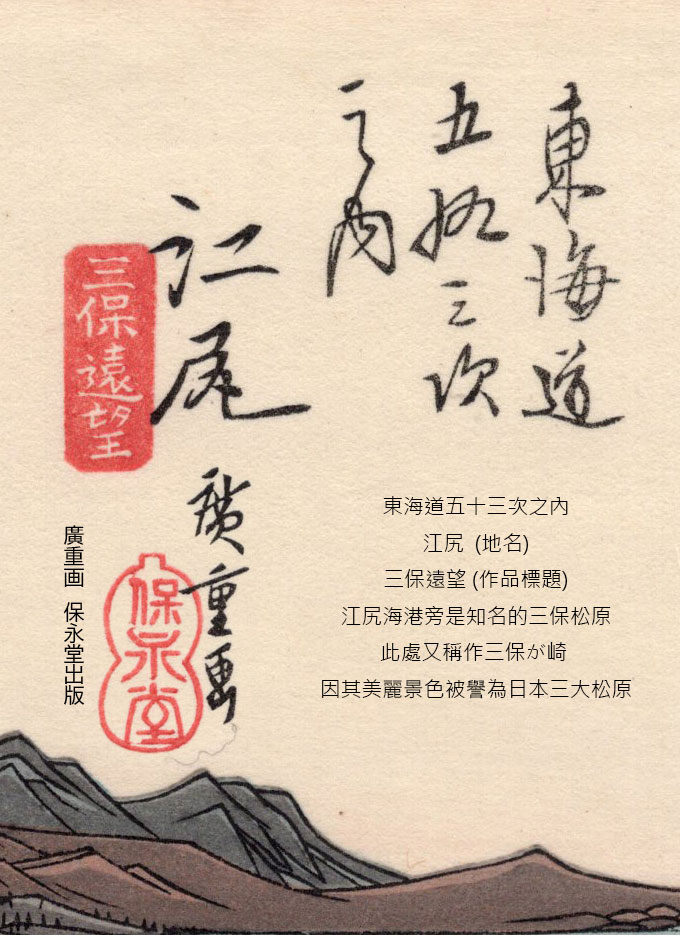 東海道
五拾三次
之内
江尻
三保遠望
廣重画
保永堂
東海道五十三次之內
江尻 (地名)
三保遠望 (作品標題)
江尻海港旁是知名的三保松原
此處又稱作三保が崎
因其美麗景色被譽為日本三大松原
廣重画 保永堂出版